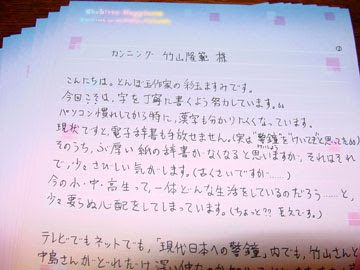 カンニング 竹山隆範 様
②
こんにちは。とんぼ玉作家の彩玉ますみです。
今回こそは、字を丁寧に書くよう努力しています。
パソコン慣れしてから特に、漢字も分かりにくくなっています。
現状ですと、電子辞書も手放せません。(実は"警鐘"を
そのうち、ぶ厚い紙の辞書がなくなると思いますが、それはそれ
で、少々さびしい気がします。(はくさいですが……)
今の小・中・高生って、一体どんな生活をしているのだろう……と、
少々要らぬ心配をしてしまっています。(ちょっと??
テレビでもネットでも、「現代日本への警鐘」内でも、竹山さんと
中島さんがどれだけ深い仲